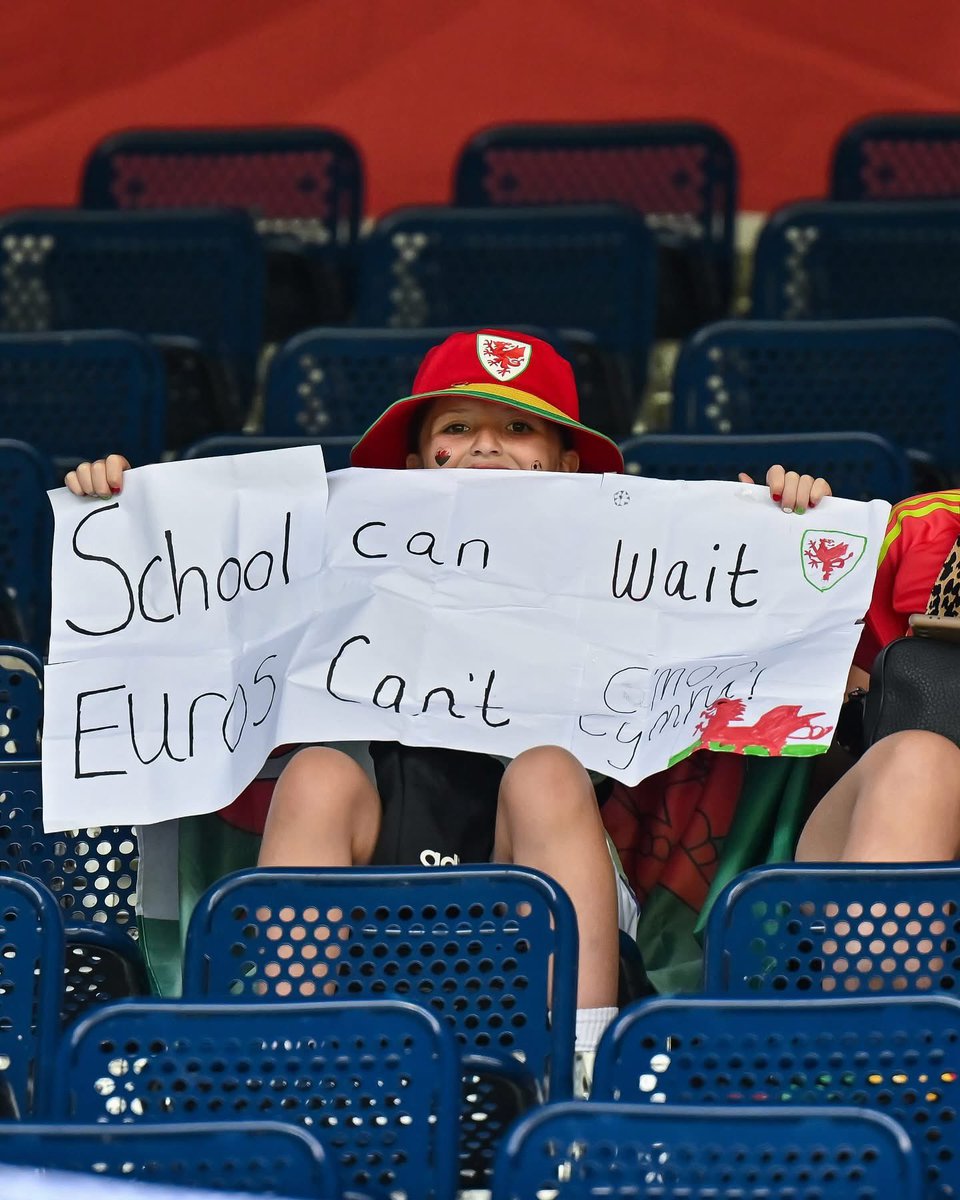 School can Wait
Euros Can't
C'mon
Cymru!
adi